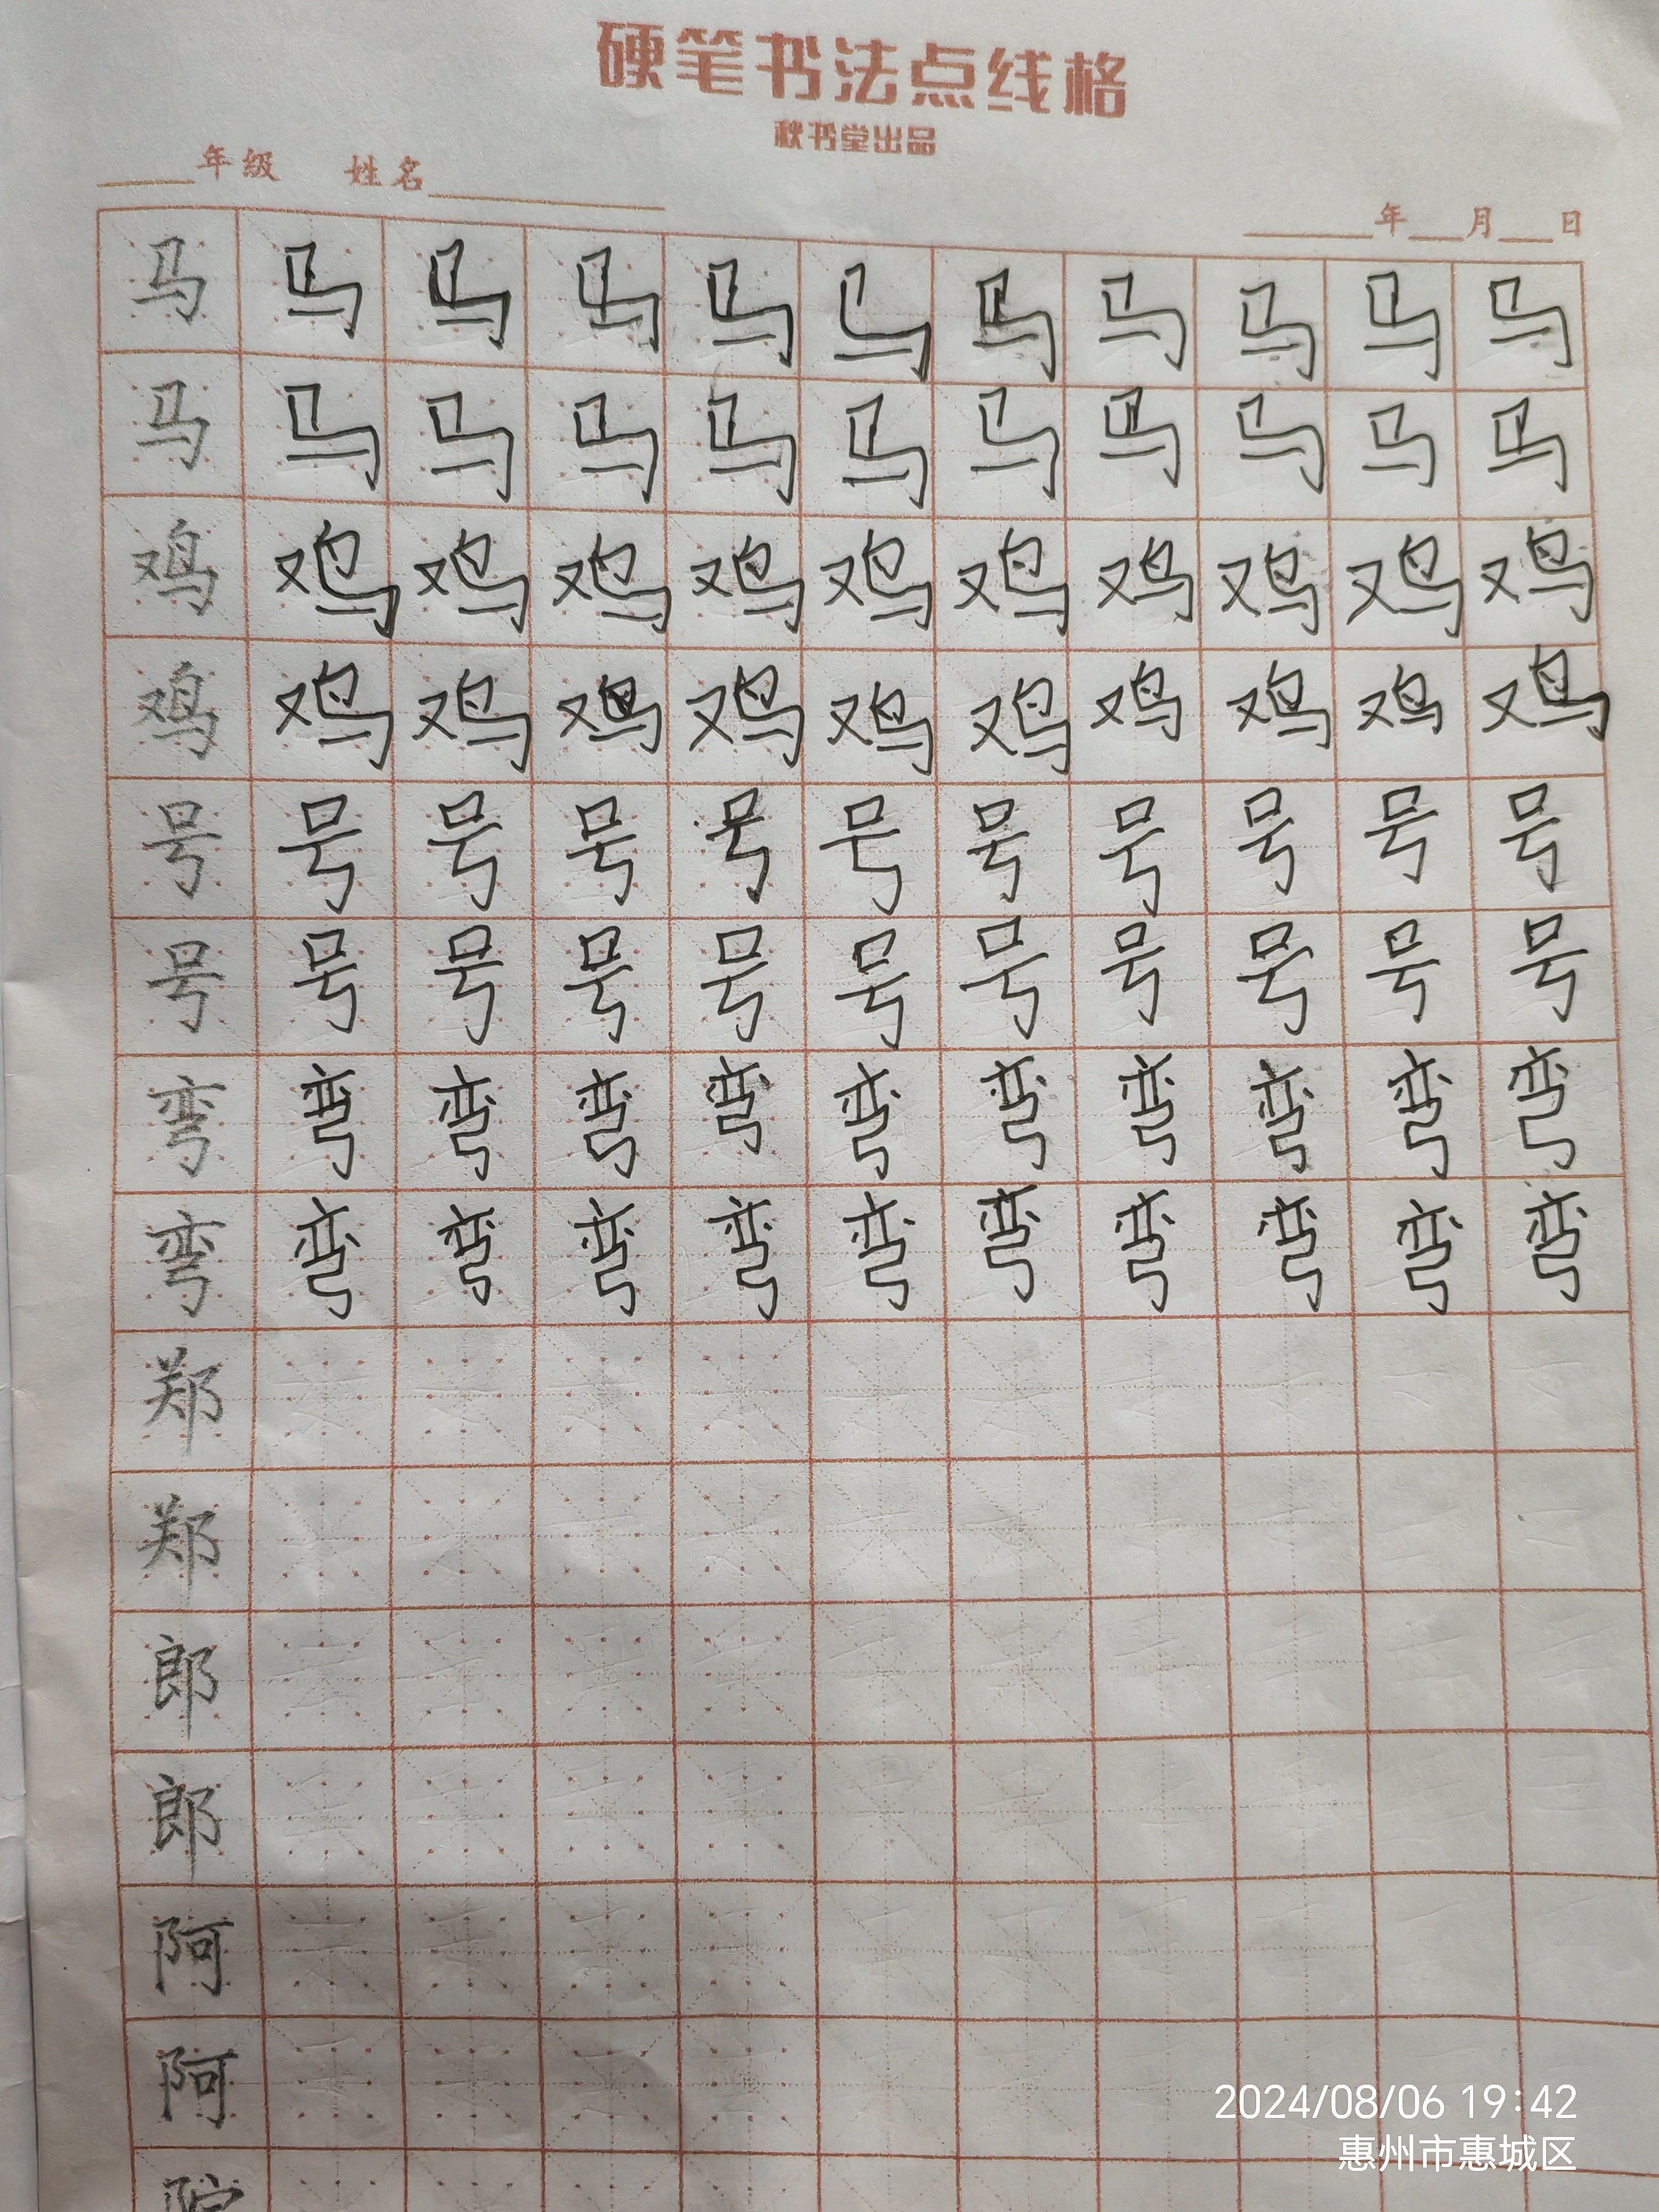 硬笔书法点线格
秋书堂出品
年级 姓名
年 月 日
马 马 马 马 马 马 马 马 马 马 马
马 马 马 马 马 马 马 马 马 马 马
鸡 鸡 鸡 鸡 鸡 鸡 鸡 鸡 鸡 鸡 鸡
鸡 鸡 鸡 鸡 鸡 鸡 鸡 鸡 鸡 鸡 鸡
号 号 号 号 号 号 号 号 号 号 号
号 号 号 号 号 号 号 号 号 号 号
弯 弯 弯 弯 弯 弯 弯 弯 弯 弯 弯
弯 弯 弯 弯 弯 弯 弯 弯 弯 弯 弯
郑
郑
郎
郎
阿
阿
2024/08/06 19:42
惠州市惠城区